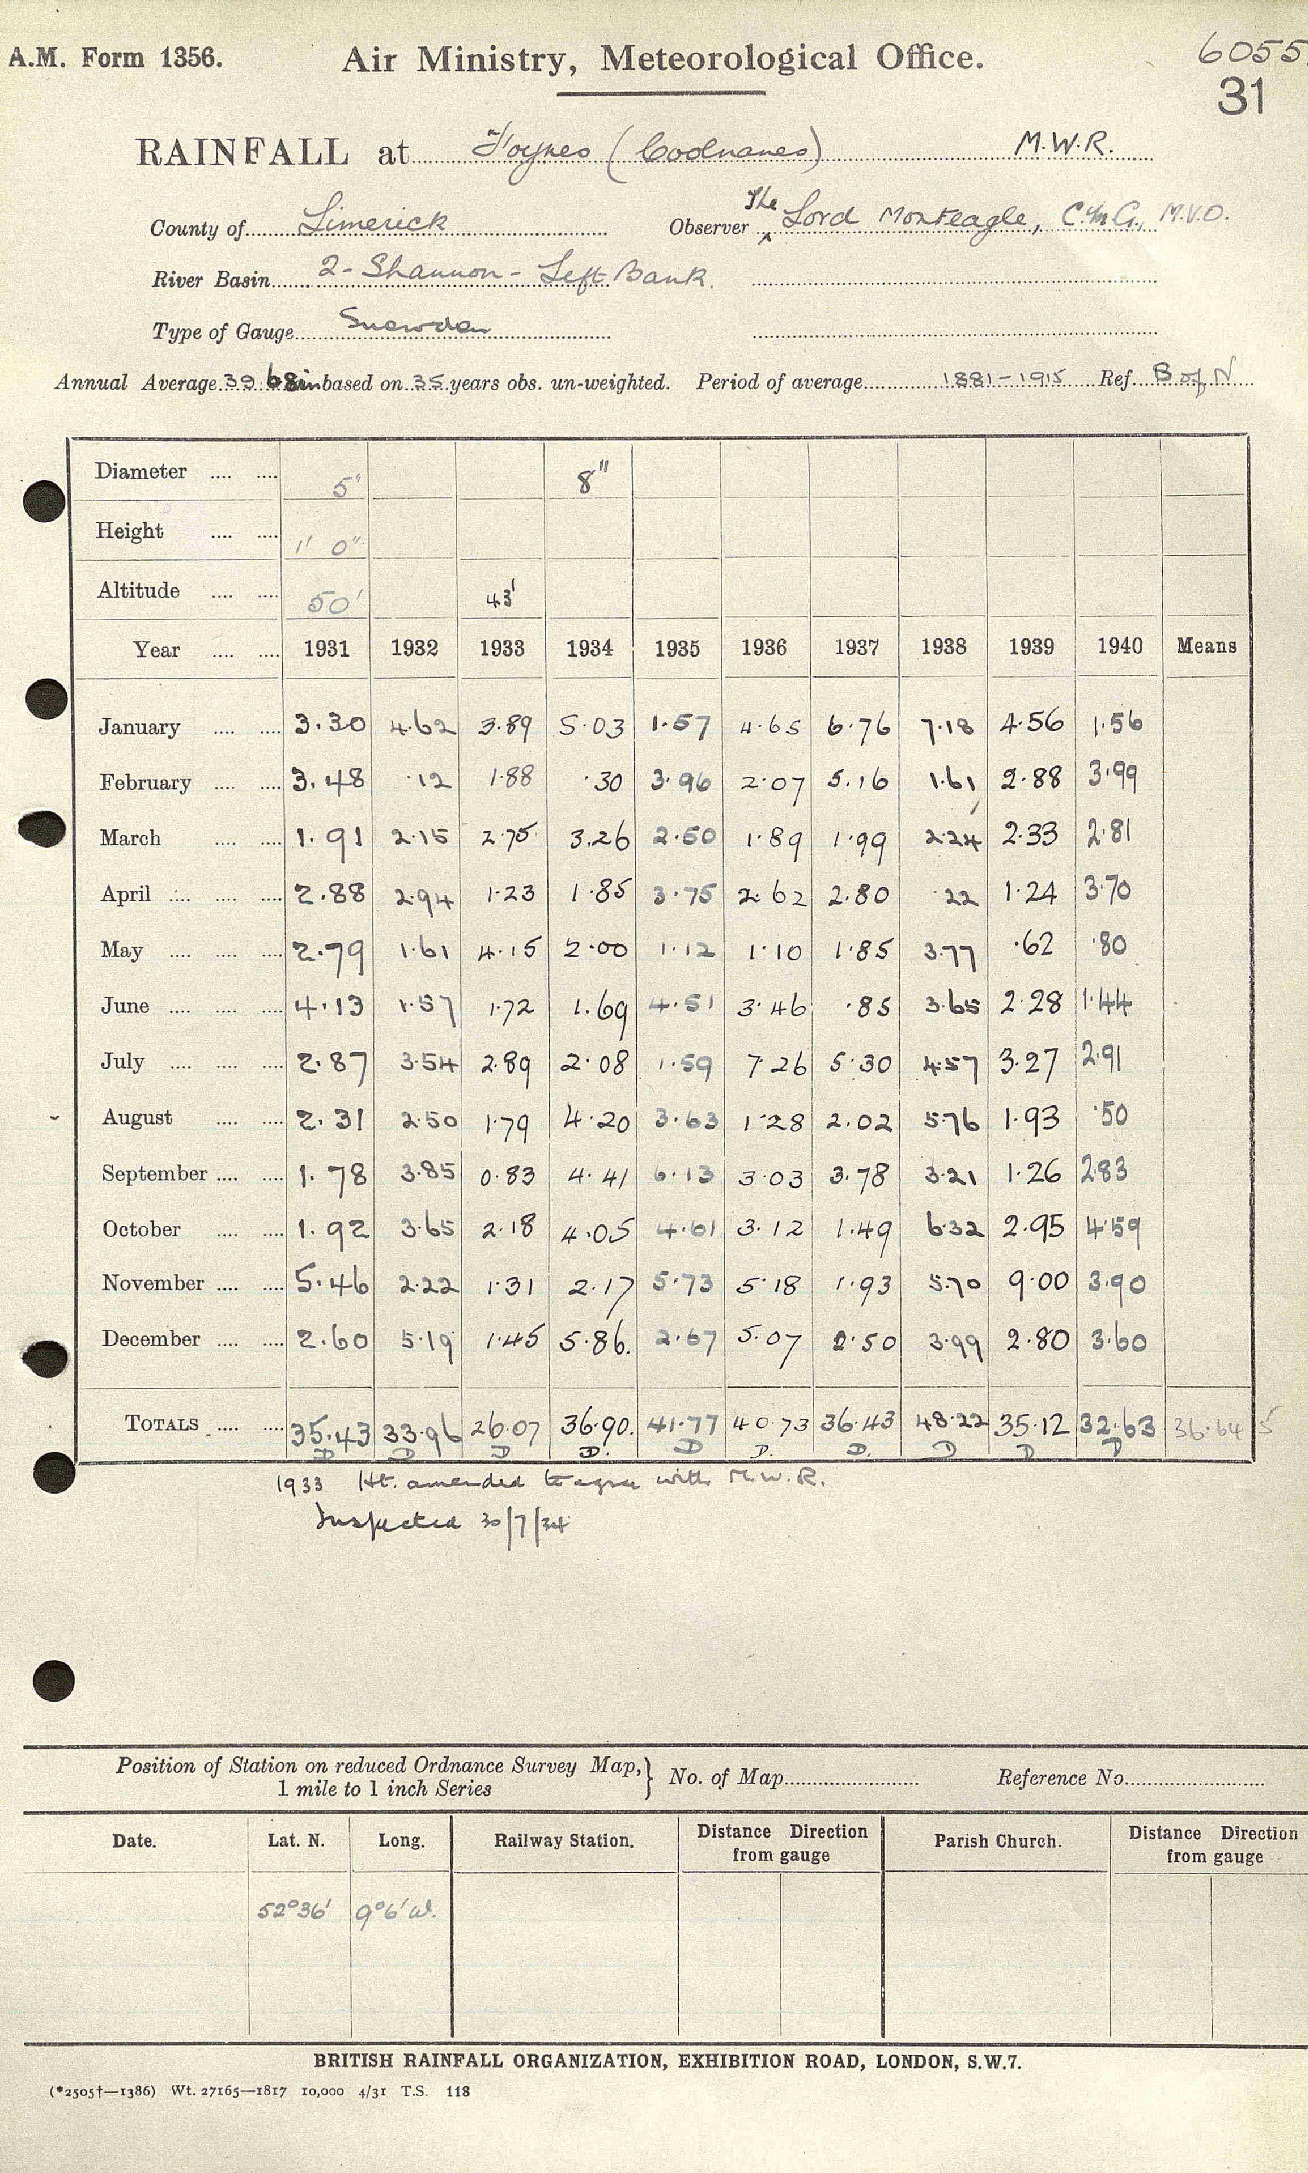 A.M. Form 1356. Air Ministry, Meteorological Office. 6055
31
RAINFALL at Foynes (Coolnanes) M.W.R.
County of Limerick Observer The Lord Monteagle, C.M.G., M.V.O.
River Basin 2- Shannon - Left Bank.
Type of Gauge Snowdon
Annual Average 39.68in based on 35 years obs. un-weighted. Period of average 1881-1915 Ref. B of N
Diameter 5" 8"
Height 1' 0"
Altitude 50' 43'
Year 1931 1932 1933 1934 1935 1936 1937 1938 1939 1940 Means
January 3.30 4.62 3.89 5.03 1.57 4.65 6.76 7.18 4.56 1.56
February 3.48 .12 1.88 .30 3.96 2.07 5.16 1.61 2.88 3.99
March 1.91 2.15 2.75 3.26 2.50 1.89 1.99 2.24 2.33 2.81
April 2.88 2.94 1.23 1.85 3.75 2.62 2.80 .22 1.24 3.70
May 2.79 1.61 4.15 2.00 1.12 1.10 1.85 3.77 .62 .80
June 4.13 1.57 1.72 1.69 4.51 3.46 .85 3.65 2.28 1.44
July 2.87 3.54 2.89 2.08 1.59 7.26 5.30 4.57 3.27 2.91
August 2.31 2.50 1.79 4.20 3.63 1.28 2.02 5.76 1.93 .50
September 1.78 3.85 0.83 4.41 6.13 3.03 3.78 3.21 1.26 2.83
October 1.92 3.65 2.18 4.05 4.61 3.12 1.49 6.32 2.95 4.59
November 5.46 2.22 1.31 2.17 5.73 5.18 1.93 5.70 9.00 3.90
December 2.60 5.19 1.45 5.86. 2.67 5.07 2.50 3.99 2.80 3.60
TOTALS 35.43 33.96 26.07 36.90. 41.77 40.73 36.43 48.22 35.12 32.63 36.64 5
D D D D. D D. D. D D D
1933 Ht. amended to agree with M.W.R.
Inspected 30/7/34
Position of Station on reduced Ordnance Survey Map, 1 mile to 1 inch Series } No. of Map Reference No.
Date. Lat. N. Long. Railway Station. Distance Direction from gauge Parish Church. Distance Direction from gauge
52°36' 9°6'W.
BRITISH RAINFALL ORGANIZATION, EXHIBITION ROAD, LONDON, S.W.7.
(*2505†—1386) Wt. 27165—1817 10,000 4/31 T.S. 118